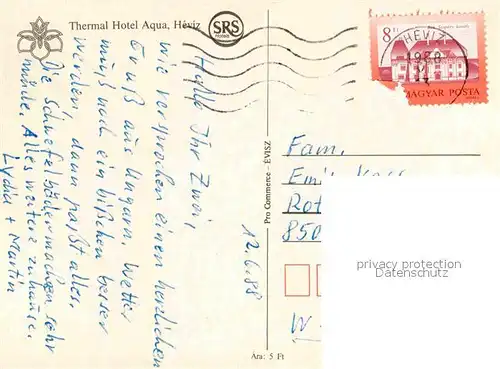 Thermal Hotel Aqua, Hévíz
SRS
Hallo Ihr Zwei,
wie versprochen einen herzlichen
Gruß aus Ungarn. Wetter
muß noch ein bißchen besser
werden, dann paßt alles.
Die Schwefelbäder machen sehr
müde. Alles weitere zuhause.
Lydia + Martin
12.6.88
Pro Commerce - ÉVISZ
Ára: 5 Ft
8 Ft
HÉVÍZ
1988
14
MAGYAR POSTA
Fam.
Rot
850
W-
privacy protection
Datenschutz